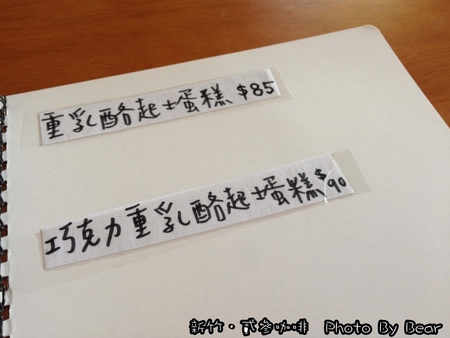 重乳酪起士蛋糕 $85
巧克力重乳酪起士蛋糕 $90
新竹・貳參咖啡 Photo By Bear